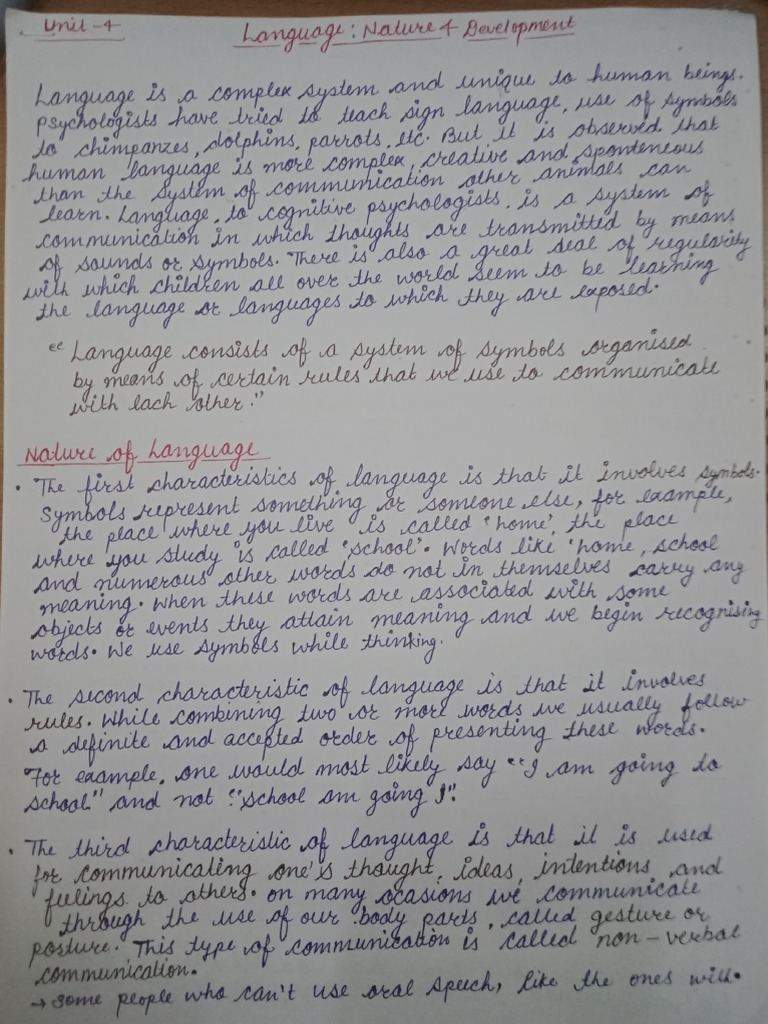 Unit-4
Language: Nature & Development
Language is a complex system and unique to human beings.
Psychologists have tried to teach sign language, use of symbols
to chimpanzes, dolphins, parrots, etc. But it is observed that
human language is more complex, creative and sponteneous
than the system of communication other animals can
learn. Language, to cognitive psychologists, is a system of
communication in which thoughts are transmitted by means
of sounds or symbols. There is also a great deal of regularity
with which children all over the world seem to be learning
the language or languages to which they are exposed.
"Language consists of a system of symbols organised
by means of certain rules that we use to communicate
with each other."
Nature of Language
• The first characteristics of language is that it involves symbols.
Symbols represent something or someone else, for example,
the place where you live is called 'home', the place
where you study is called 'school'. Words like 'home, school
and numerous other words do not in themselves carry any
meaning. When these words are associated with some
objects or events they attain meaning and we begin recognising
words. We use symbols while thinking.
• The second characteristic of language is that it involves
rules. While combining two or more words we usually follow
a definite and accepted order of presenting these words.
For example, one would most likely say "I am going to
school" and not "School am going I".
• The third characteristic of language is that it is used
for communicating one's thought, ideas, intentions, and
feelings to others. On many ocasions we communicate
through the use of our body parts, called gesture or
posture. This type of communication is called non-verbal
communication.
→ Some people who can't use oral speech, like the ones with.